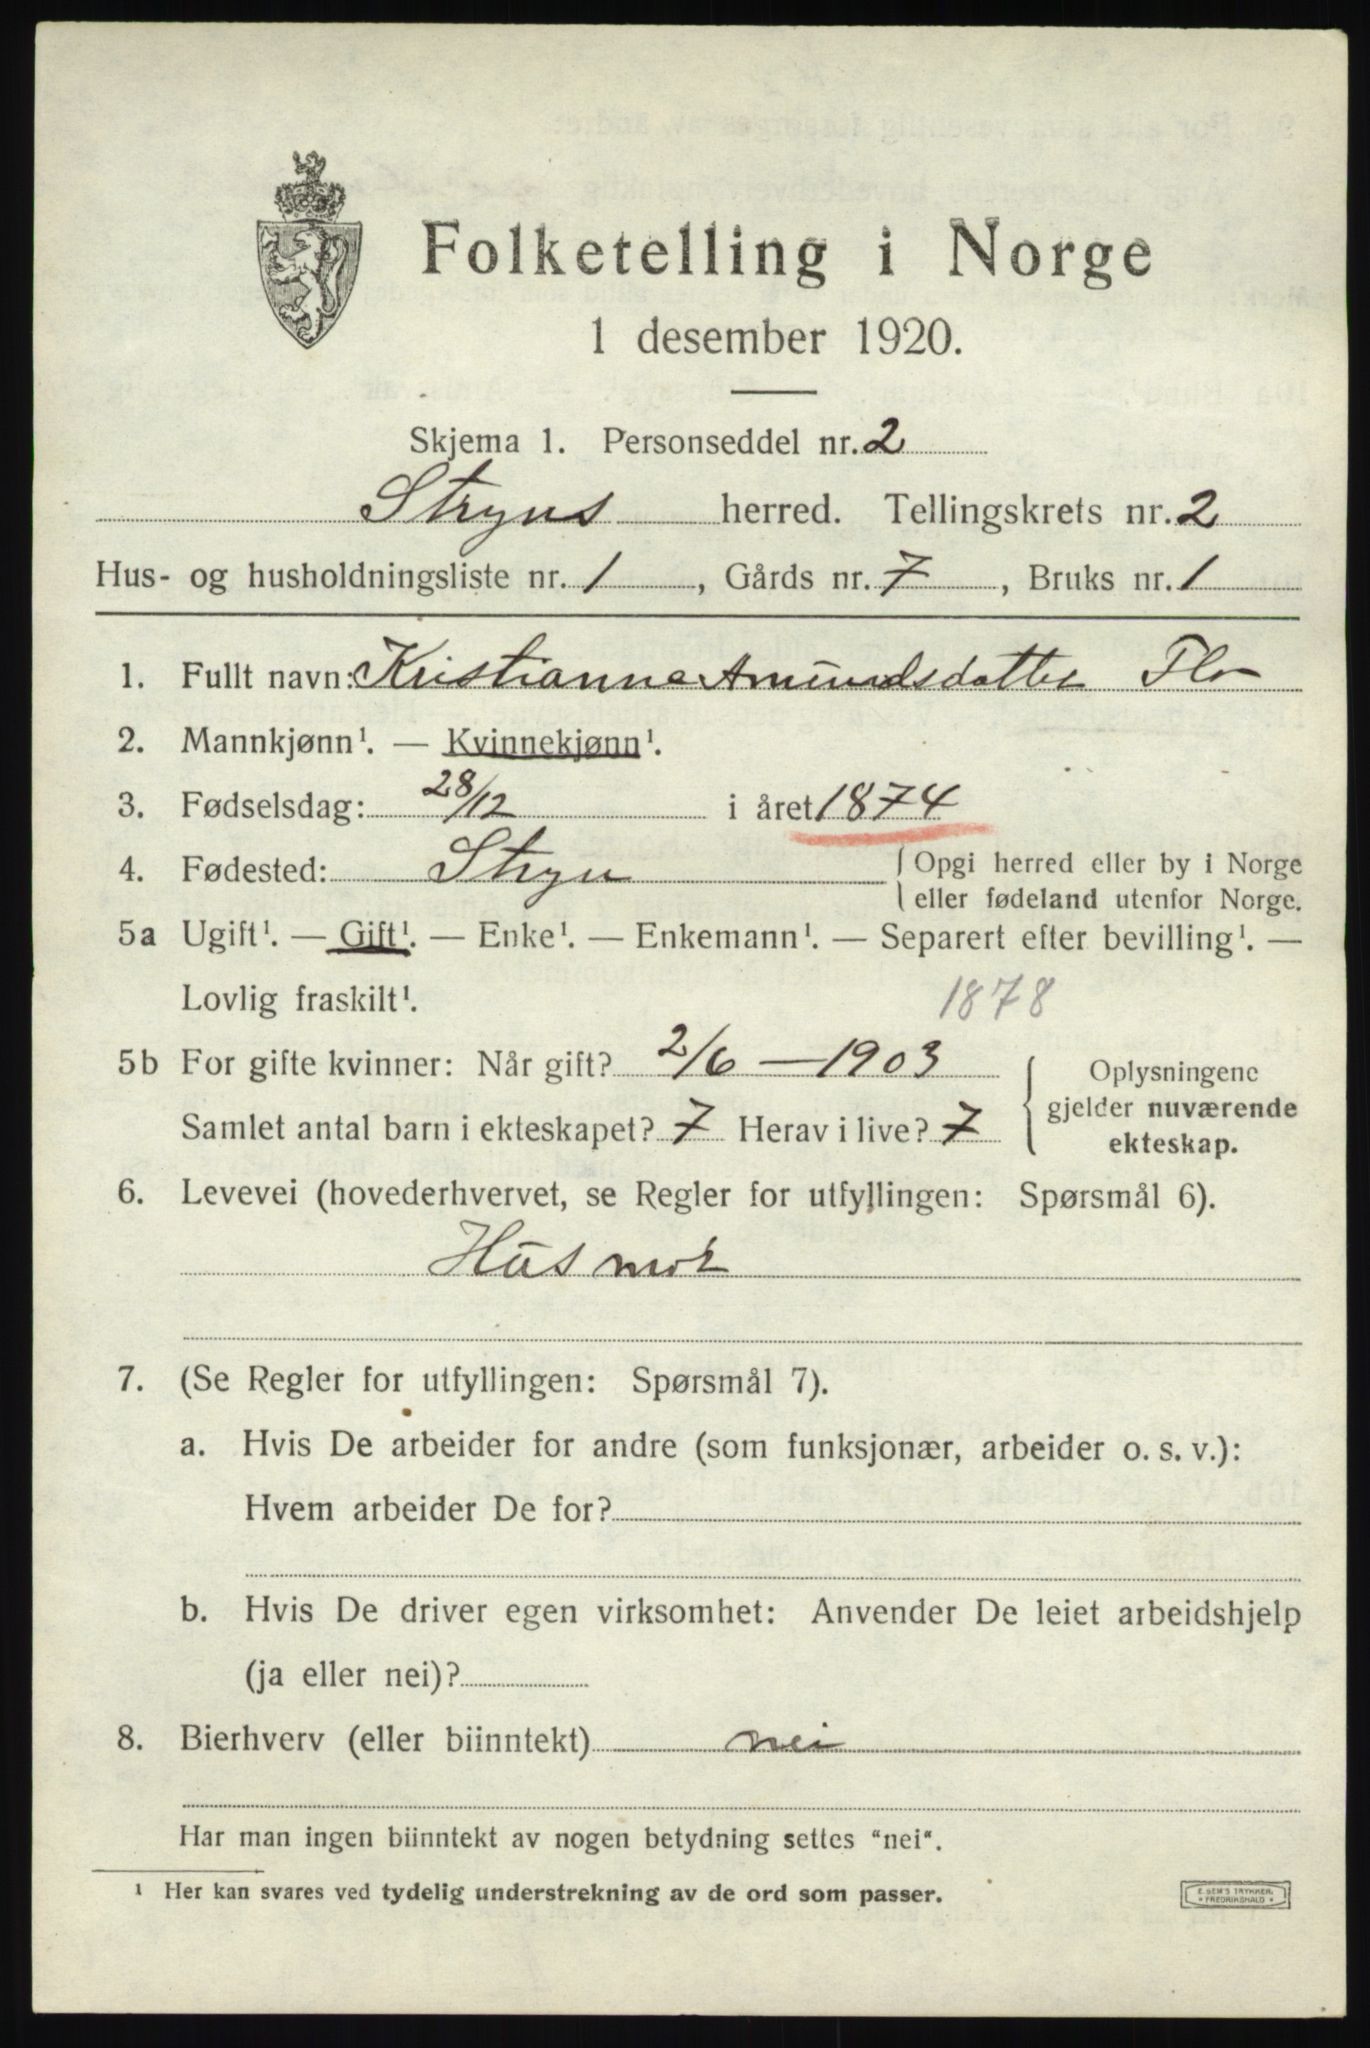 Folketelling i Norge
1 desember 1920.
Skjema 1. Personseddel nr. 2
Stryns herred. Tellingskrets nr. 2
Hus- og husholdningsliste nr. 1, Gårds nr. 7, Bruks nr. 1
1. Fullt navn: Kristianne Amundsdatter Flo
2. Mannkjønn¹. — Kvinnekjønn¹.
3. Fødselsdag: 28/12 i året 1874
4. Fødested: Stryn { Opgi herred eller by i Norge
eller fødeland utenfor Norge.
5a Ugift¹. — Gift¹. — Enke¹. — Enkemann¹. — Separert efter bevilling¹. —
Lovlig fraskilt¹. 1878
5b For gifte kvinner: Når gift? 2/6 — 1903
Samlet antal barn i ekteskapet? 7 Herav i live? 7
{ Oplysningene
gjelder nuværende
ekteskap.
6. Levevei (hovederhvervet, se Regler for utfyllingen: Spørsmål 6).
Husmor
7. (Se Regler for utfyllingen: Spørsmål 7).
a. Hvis De arbeider for andre (som funksjonær, arbeider o. s. v.):
Hvem arbeider De for?
b. Hvis De driver egen virksomhet: Anvender De leiet arbeidshjelp
(ja eller nei)?
8. Bierhverv (eller biinntekt) nei
Har man ingen biinntekt av nogen betydning settes “nei“.
¹ Her kan svares ved tydelig understrekning av de ord som passer.
E. SEM'S TRYKKERI
FREDRIKSHALD